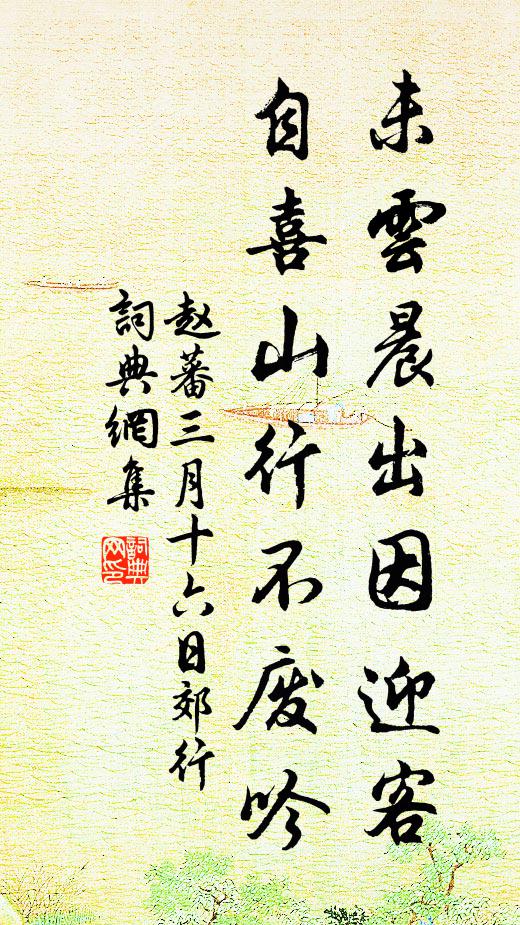 未雲晨出因迎客
自喜山行不废吟
赵蕃三月十六日郊行
詞典網集
詞典
网印